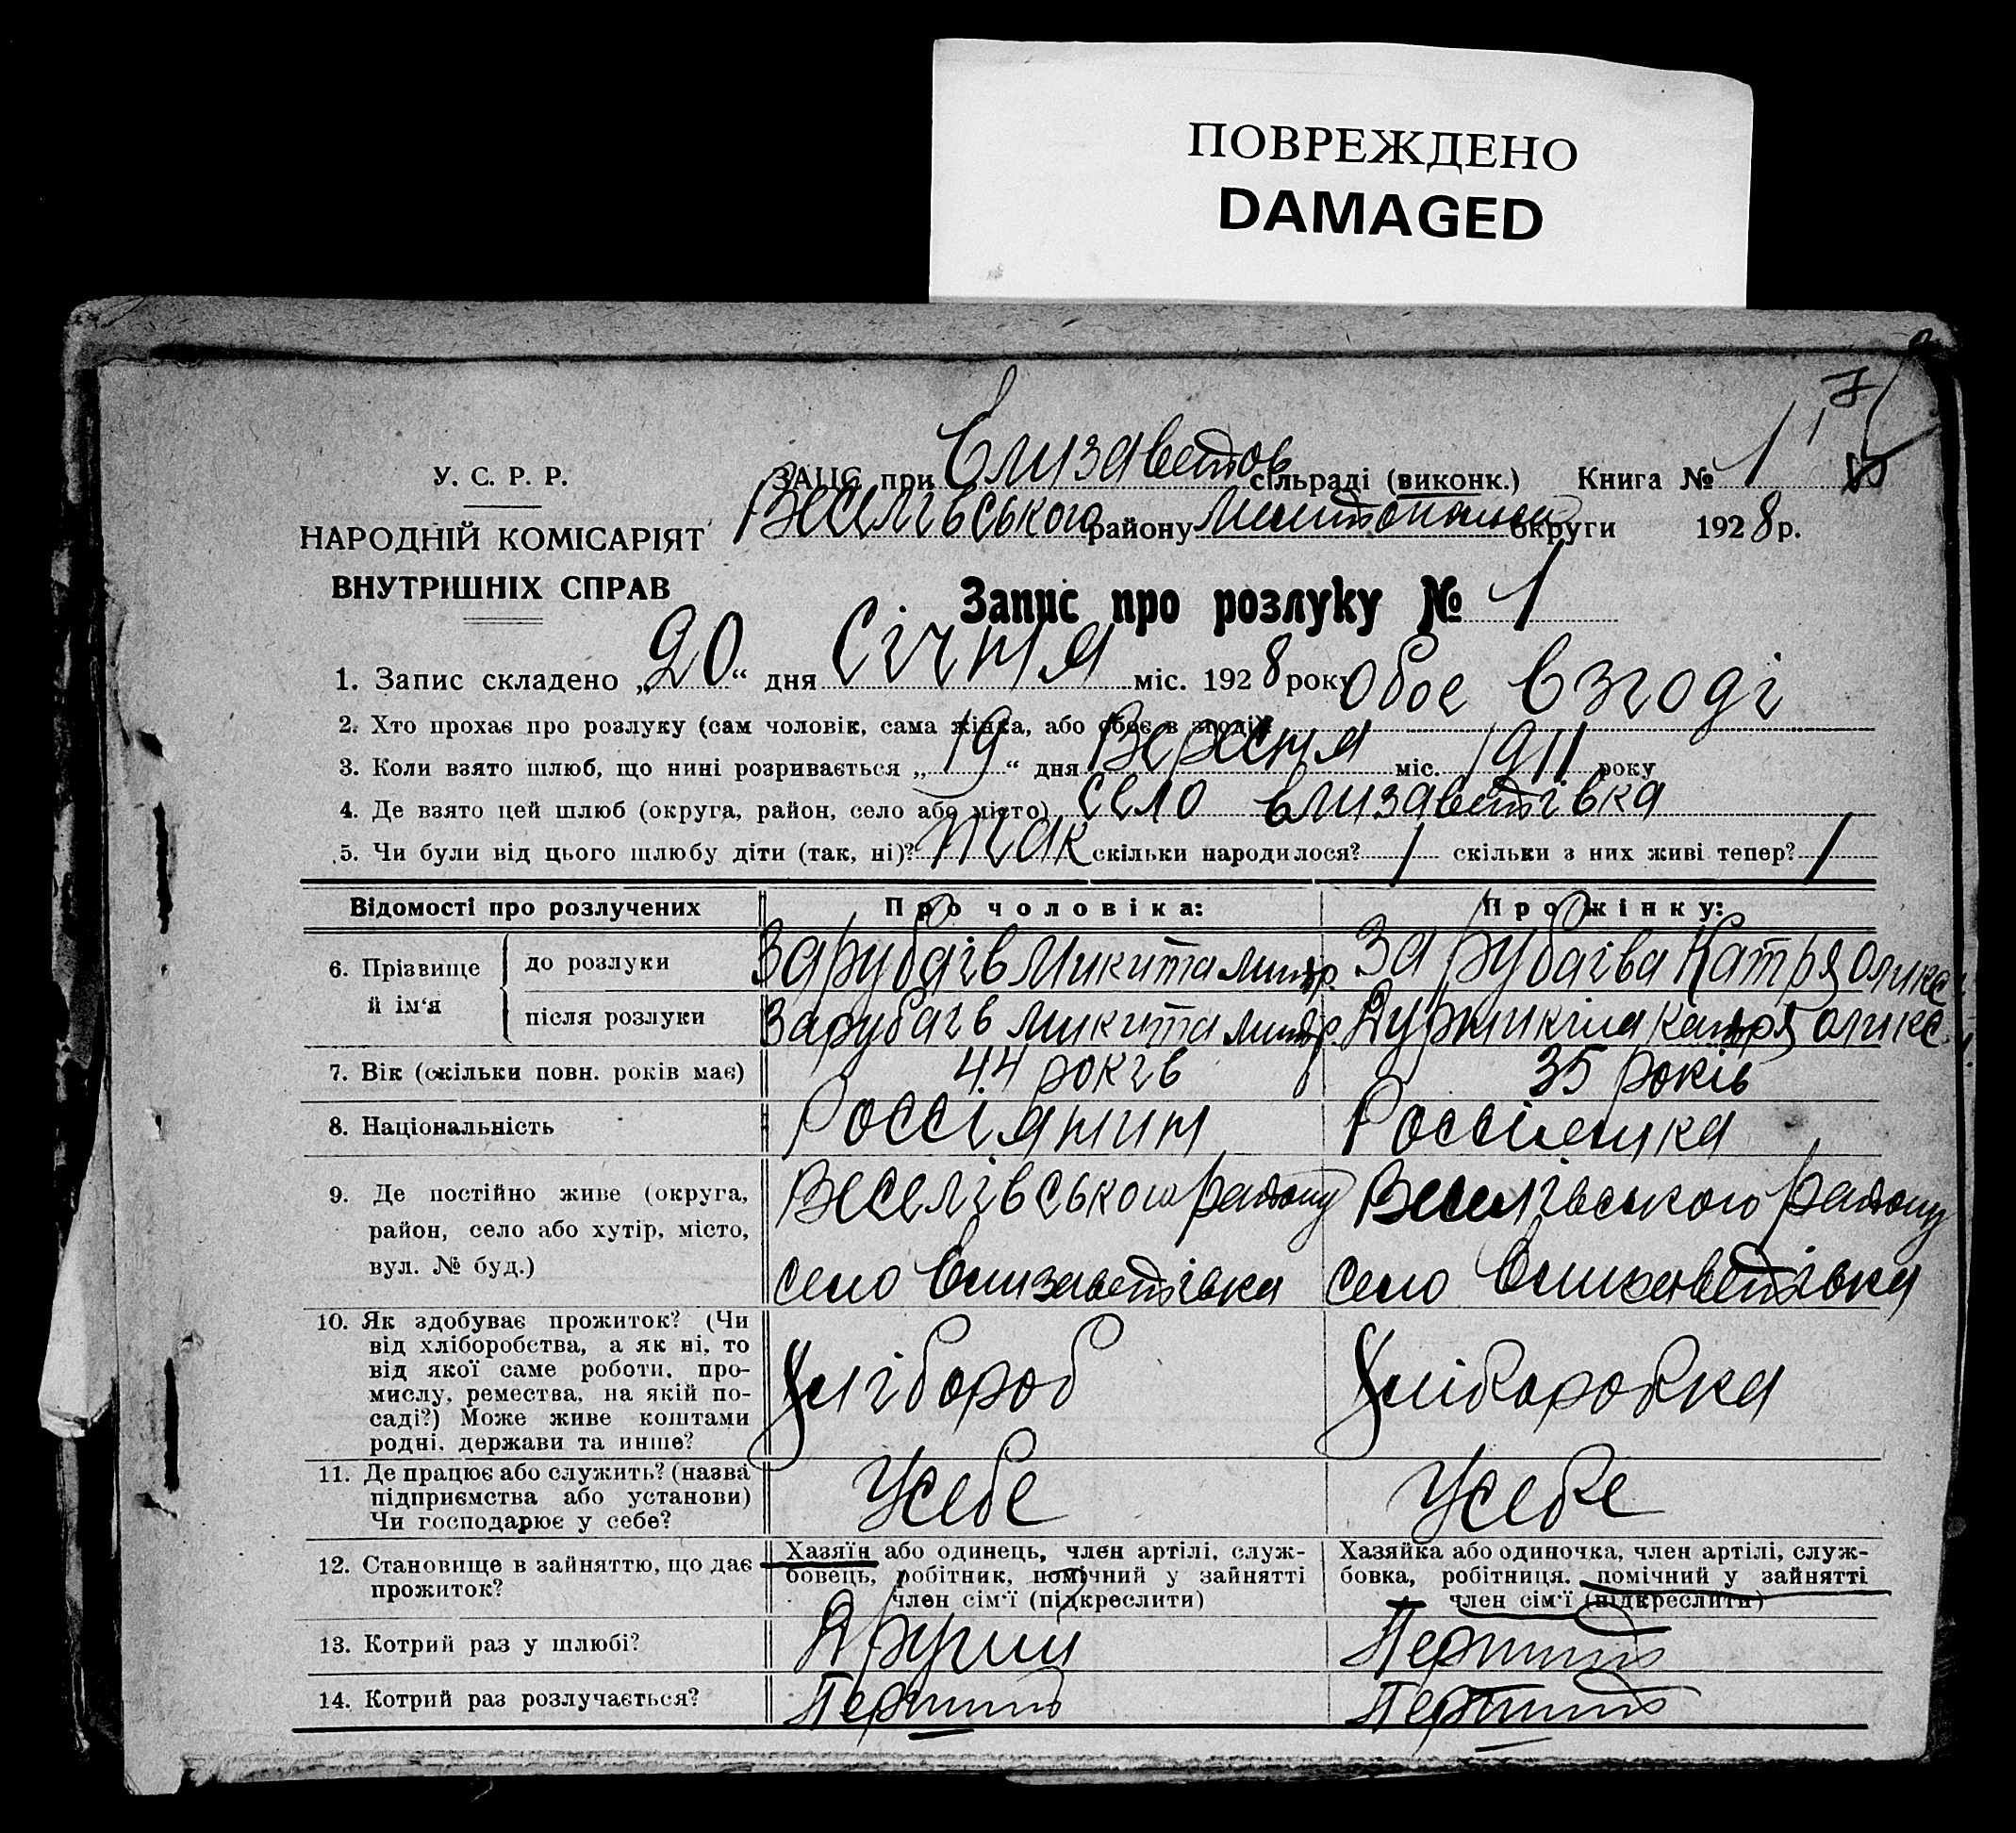 ПОВРЕЖДЕНО
DAMAGED
7
У. С. Р. Р.
НАРОДНІЙ КОМІСАРІЯТ
ВНУТРІШНІХ СПРАВ
ЗАЦС при Елизаветов сільраді (виконк.) Книга № 1
Веселівського району округи 1928 р.
Запис про розлуку № 1
1. Запис складено „20“ дня Січня міс. 1928 року
2. Хто прохає про розлуку (сам чоловік, сама жінка, або обоє в згоді)? Обоє в згоді
3. Коли взято шлюб, що нині розривається „19“ дня Вересня міс. 1911 року
4. Де взято цей шлюб (округа, район, село або місто) село Елизаветівка
5. Чи були від цього шлюбу діти (так, ні)? так скільки народилося? 1 скільки з них живі тепер? 1
Відомості про розлучених Про чоловіка: Про жінку:
6. Прізвище й ім‘я
до розлуки Зарубаів Микита Митр. Зарубаіва Катря Олике
після розлуки Зарубаів Микита Митр. Катря Олике
7. Вік (скільки повн. років має) 44 років 35 років
8. Національність Россіянин Россіянка
9. Де постійно живе (округа, Веселівського району Веселівського району
район, село або хутір, місто,
вул. № буд.) село Елизаветівка село Елизаветівка
10. Як здобуває прожиток? (Чи
від хліборобства, а як ні, то
від якої саме роботи, про-
мислу, ремества, на якій по- Хлібороб Хліборобка
саді?) Може живе коштами
родні, держави та инше?
11. Де працює або служить? (назва
підприємства або установи) Усебе Усебе
Чи господарює у себе?
12. Становище в зайняттю, що дає
прожиток?
Хазяїн або одинець, член артілі, служ-
бовець, робітник, помічний у зайнятті
член сім‘ї (підкреслити)
Хазяйка або одиночка, член артілі, служ-
бовка, робітниця, помічний у зайнятті
член сім‘ї (підкреслити)
13. Котрий раз у шлюбі? Другий Перший
14. Котрий раз розлучається? Перший Перший